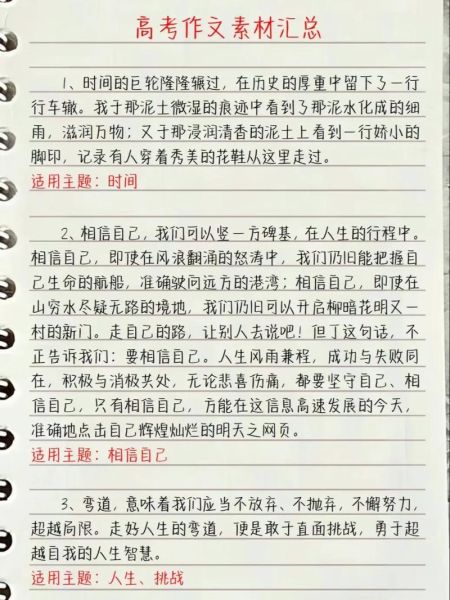 高考作文素材汇总
1、时间的巨轮隆隆辗过，在历史的厚重中留下了一行
行车辙。我于那泥土微湿的痕迹中看到了那泥水化成的细
雨，滋润万物；又于那浸润清香的泥土上看到一行娇小的
脚印，记录有人穿着秀美的花鞋从这里走过。
适用主题：时间
2、相信自己，我们可以竖一方碑基，在人生的行程中。
相信自己，即使在风浪翻涌的怒涛中，我们仍旧能把握自
己生命的航船，准确驶向远方的港湾；相信自己，即使在
山穷水尽疑无路的境地，我们仍旧可以开启柳暗花明又一
村的新门。走自己的路，让别人去说吧！但丁这句话，不
正告诉我们：要相信自己。人生风雨兼程，成功与失败同
在，积极与消极共处，无论悲喜伤痛，都要坚守自己、相
信自己，只有相信自己，方能在这信息高速发展的今天，
准确地点击自己辉煌灿烂的明天之网页。
适用主题：相信自己
3、弯道，意味着我们应当不放弃、不抛弃，不懈努力，
超越局限。走好人生的弯道，便是敢于直面挑战，勇于超
越自我的人生智慧。
适用主题：人生、挑战